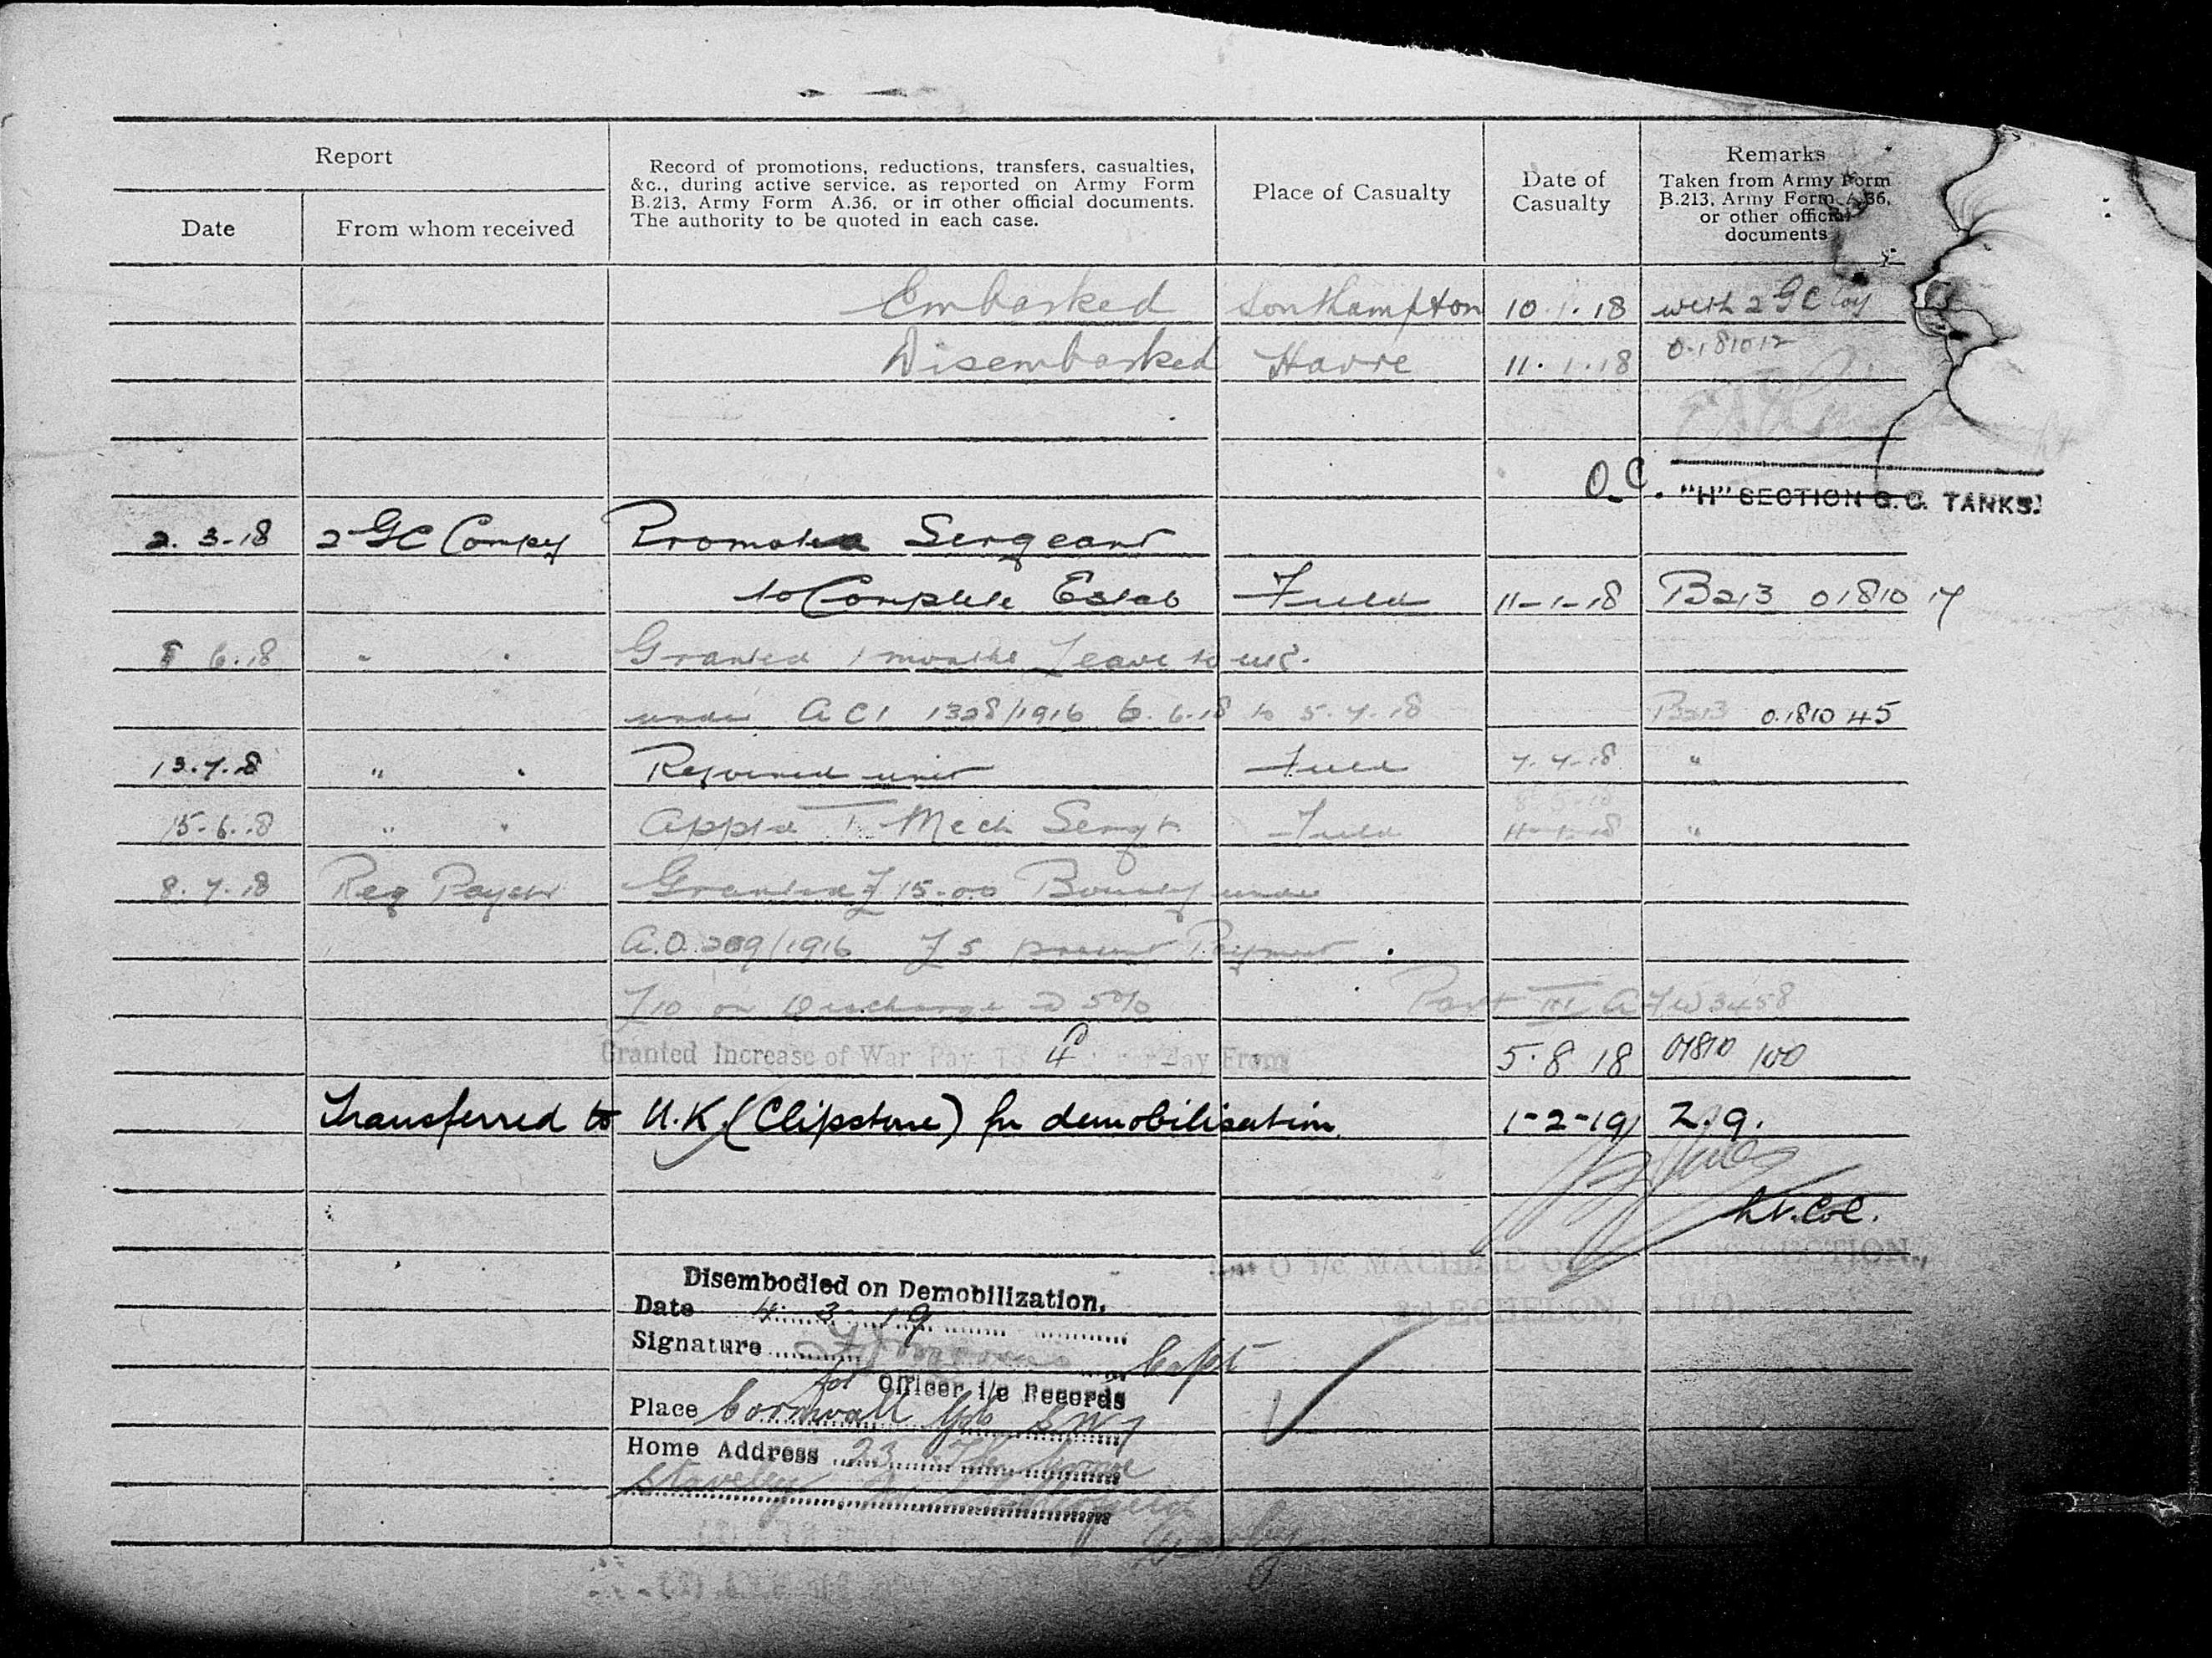 Report
Date
From whom received
Record of promotions, reductions, transfers, casualties,
&c., during active service, as reported on Army Form
B.213, Army Form A.36, or in other official documents.
The authority to be quoted in each case.
Place of Casualty
Date of
Casualty
Remarks
Taken from Army Form
B.213, Army Form A.36,
or other official
documents
Embarked Southampton 10.1.18 with 2 GC Coy
Disembarked Havre 11.1.18 0.181012
O.C. "H" SECTION G.C. TANKS.
2.3-18 2 GC Compy Promoted Sergeant
to Complete Estab Field 11-1-18 B213 01810 17
6.18 " " Granted 1 months Leave to UK.
under ACI 1328/1916 6.6.18 to 5.7.18 B213 0.1810 45
13.7.18 " " Rejoined unit Field 7.7.18 "
15.6.18 " " Apptd T Mech Sergt Field 11-1-18 "
8.7.18 Reg Paymr Granted £15-00 Bounty under
A.O. 209/1916 £5 present Payment
£10 on Discharge @ 5% Part III A F W 3458
Granted Increase of War Pay 4d per day From 5.8.18 01810 100
Transferred to U.K. (Clipstone) for demobilisation. 1-2-19 Z.9.
Lt. Col.
O i/c MACHINE SECTION,
ECHELON,
Disembodied on Demobilization.
Date 4. 3. 19
Signature Capt
for Officer i/c Records
Place Cornwall Gds S W 7
Home Address 23 The Grove
Staveley
Derby